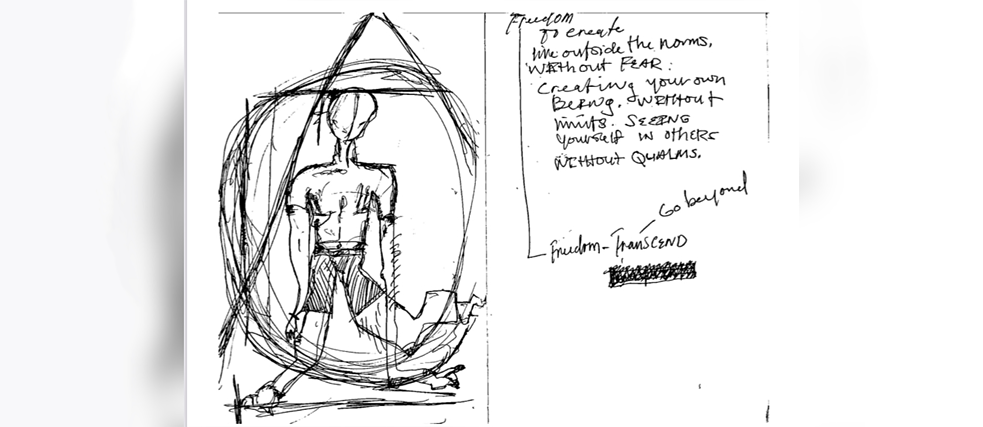 Freedom
To create
live outside the norms,
WITHOUT FEAR.
Creating your own
Being. WITHOUT
limits. SEEING
yourself in others
WITHOUT QUALMS.
Go beyond
Freedom - TRANSCEND